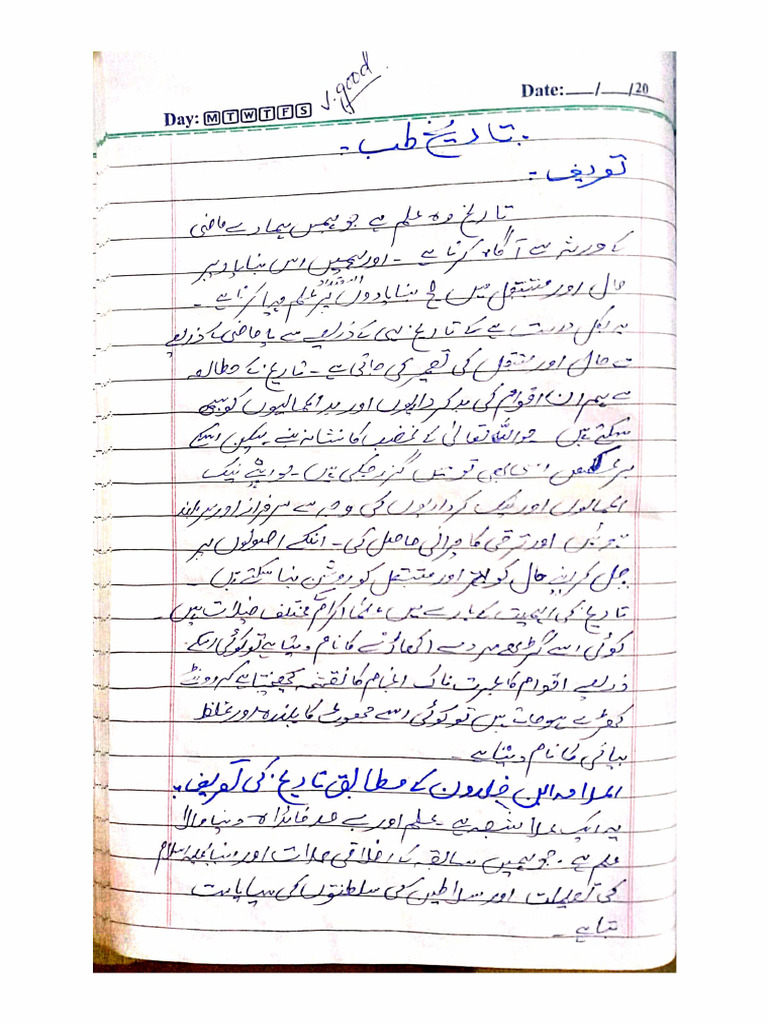 v.good
Day: M T W T F S
Date:__/__/20
تاریخ طب۔
تعریف۔
تاریخ وہ علم ہے جو ہمیں ہمارے ماضی
کے ورثہ سے آگاہ کرتا ہے۔ اور ہمیں اس بنیاد پر
حال اور مستقبل میں بنیادوں پر علم مہیا کرتا ہے۔
یہ بالکل درست ہے کے تاریخ ہی کے ذریعے سے یا ماضی کے ذریعے
حال اور مستقبل کی تعمیر کی جاتی ہے۔ تاریخ کے مطالعہ
سے ہم ان اقوام کی بدکرداریوں اور بداعمالیوں کو بھی
سکتے ہیں جو اللہ تعالیٰ کے غضب کا نشانہ بنے۔ لیکن اسکے
برعکس ایسی بھی قومیں گزر چکی ہیں۔ جو اپنے نیک
اعمالوں اور نیک کرداریوں کی وجہ سے سرفراز اور سربلند
ہوئیں اور ترقی کا حاصل کی۔ انکے اصولوں پر
چل کر اپنے حال کو اور مستقبل کو روشن بنا سکتے ہیں۔
تاریخ کی اہمیت کے بارے میں علما اکرام کے مختلف خیالات ہیں۔
کوئی اسے گڑھے مردے اکھاڑنے کا نام دیتا ہے تو کوئی اسکے
ذریعے اقوام کا عبرت ناک انجام کا نقشہ کھینچتا ہے کہ رونٹے
کھڑے ہو جاتے ہیں تو کوئی اسے جھوٹ کا پلندہ اور غلط
بیانی کا نام دیتا ہے۔
العلامہ ابن خلدون کے مطابق تاریخ کی تعریف۔
یہ ایک شعبہ ہے۔ علم اور بے حد فائدہ دینے والا
علم ہے۔ جو ہمیں سابقہ کے اخلاقی حالات اور علیہ السلام
کی تعلیمات اور سلاطین کی سلطنتوں کی سیاسیات
بتاتا ہے۔